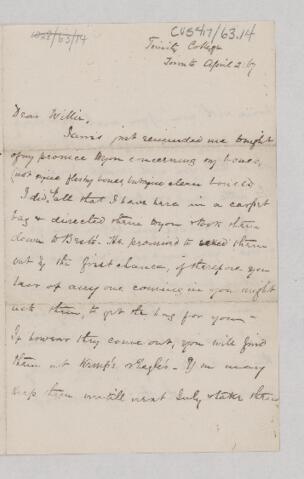 1028/63/14
CUB 47/63.14
Trinity College
Toronto April 2. 67
Dear Willie,
I am just reminded me tonight
of my promise to you concerning my bones,
(not mine fleshy bones, but mine clean bones)
I did, all that I have here in a carpet
bag & directed them to you & took them
down to Brett's. He promised to send them
out by the first chance, if therefore you
hear of any one coming in you might
ask them, to get the bag for you –
If however they come out, you will find
them at Kemp's or Eagle's – You may
keep them until next July & take them